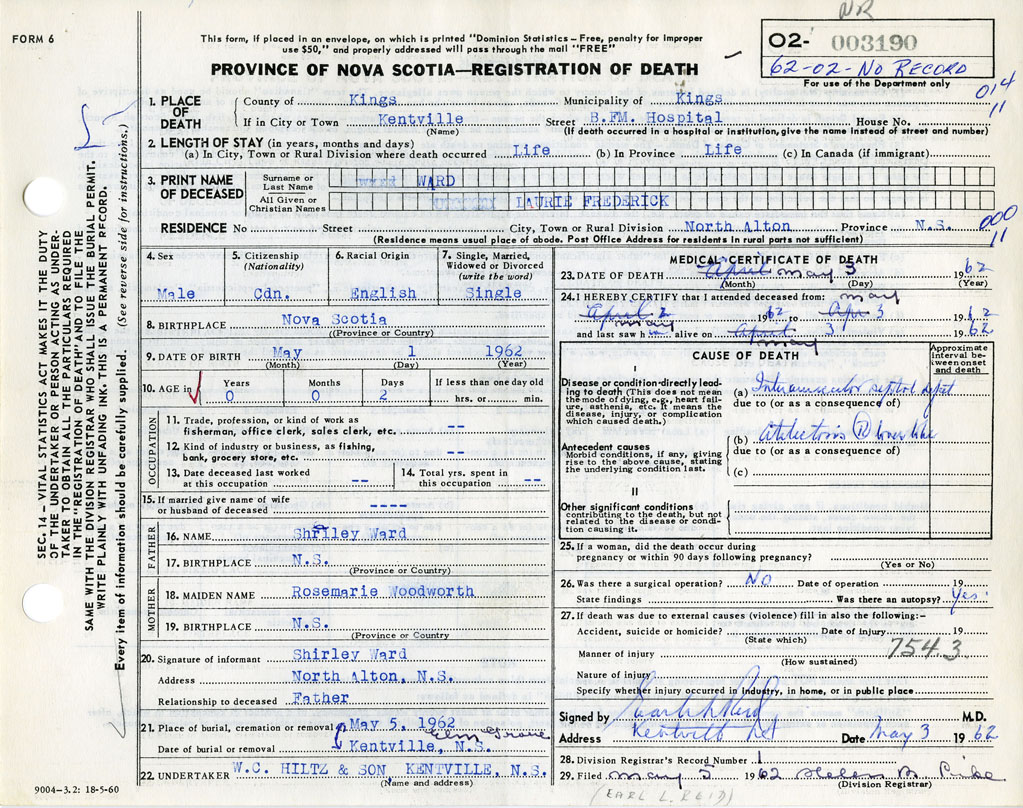 NR
FORM 6
This form, if placed in an envelope, on which is printed "Dominion Statistics—Free, penalty for improper
use $50," and properly addressed will pass through the mail "FREE"
02- 003190
62-02-No RECORD
For use of the Department only
PROVINCE OF NOVA SCOTIA—REGISTRATION OF DEATH
014
11
1. PLACE OF DEATH
County of Kings Municipality of Kings
If in City or Town Kentville Street B.FM. Hospital House No.
(Name) (If death occurred in a hospital or institution, give the name instead of street and number)
2. LENGTH OF STAY (in years, months and days)
(a) In City, Town or Rural Division where death occurred Life (b) In Province Life (c) In Canada (if immigrant)
3. PRINT NAME OF DECEASED
Surname or Last Name WARD
All Given or Christian Names LAURIE FREDERICK
000
11
RESIDENCE No Street City, Town or Rural Division North Alton Province N.S.
(Residence means usual place of abode. Post Office Address for residents in rural parts not sufficient)
4. Sex
Male
5. Citizenship
(Nationality)
Cdn.
6. Racial Origin
English
7. Single, Married,
Widowed or Divorced
(write the word)
Single
8. BIRTHPLACE Nova Scotia
(Province or Country)
9. DATE OF BIRTH May 1 1962
(Month) (Day) (Year)
10. AGE in
Years Months Days If less than one day old
0 0 2 hrs. or min.
OCCUPATION
11. Trade, profession, or kind of work as
fisherman, office clerk, sales clerk, etc. --
12. Kind of industry or business, as fishing,
bank, grocery store, etc. --
13. Date deceased last worked
at this occupation --
14. Total yrs. spent in
this occupation --
15. If married give name of wife
or husband of deceased ----
FATHER
16. NAME Shirley Ward
17. BIRTHPLACE N.S.
(Province or Country)
MOTHER
18. MAIDEN NAME Rosemarie Woodworth
19. BIRTHPLACE N.S.
(Province or Country
20. Signature of informant Shirley Ward
Address North Alton, N.S.
Relationship to deceased Father
21. Place of burial, cremation or removal May 5, 1962
Elm Grove
Date of burial or removal Kentville, N.S.
22. UNDERTAKER W.C. HILTZ & SON, KENTVILLE, N.S.
(Name and address)
9004—3.2: 18-5-60
MEDICAL CERTIFICATE OF DEATH
23. DATE OF DEATH April May 3 1962
(Month) (Day) (Year)
24. I HEREBY CERTIFY that I attended deceased from: May
April 2 1962 to Apr 3 1962
May
and last saw h im alive on April 3 1962
May
CAUSE OF DEATH
Approximate
interval be-
tween onset
and death
I
Disease or condition directly lead-
ing to death (This does not mean
the mode of dying, e.g., heart fail-
ure, asthenia, etc. It means the
disease, injury, or complication
which caused death.)
(a) septal
due to (or as a consequence of)
Antecedent causes
Morbid conditions, if any, giving
rise to the above cause, stating
the underlying condition last.
(b) R lower
due to (or as a consequence of)
(c)
II
Other significant conditions
contributing to the death, but not
related to the disease or condi-
tion causing it.
25. If a woman, did the death occur during
pregnancy or within 90 days following pregnancy?
(Yes or No)
26. Was there a surgical operation? NO Date of operation 19
State findings Was there an autopsy? Yes
27. If death was due to external causes (violence) fill in also the following:—
Accident, suicide or homicide? Date of injury 19
(State which)
754.3
Manner of injury
(How sustained)
Nature of injury
Specify whether injury occurred in industry, in home, or in public place
Signed by Earl L Reid M.D.
Address Kentville NS Date May 3 1962
28. Division Registrar's Record Number 1
29. Filed May 5 1962 Helen B. Pike
(Division Registrar)
(EARL L. REID)
SEC. 14 - VITAL STATISTICS ACT MAKES IT THE DUTY
OF THE UNDERTAKER OR PERSON ACTING AS UNDER-
TAKER TO OBTAIN ALL THE PARTICULARS REQUIRED
IN THE "REGISTRATION OF DEATH" AND TO FILE THE
SAME WITH THE DIVISION REGISTRAR WHO SHALL ISSUE THE BURIAL PERMIT.
WRITE PLAINLY WITH UNFADING INK. THIS IS A PERMANENT RECORD.
Every item of information should be carefully supplied. (See reverse side for instructions.)